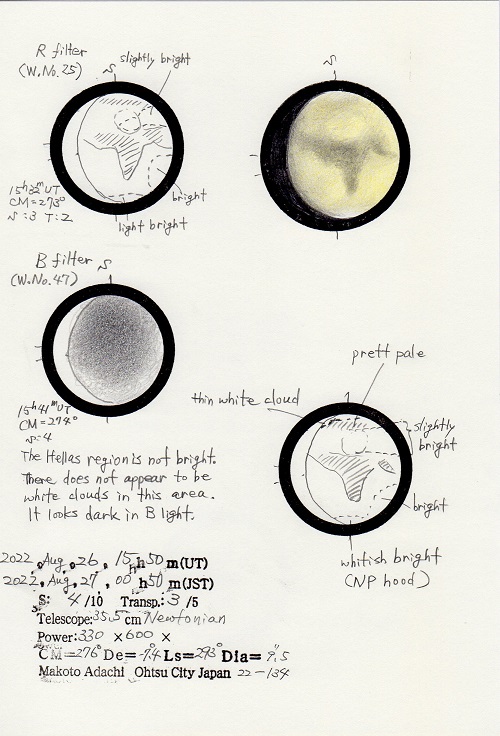 R filter
(W.No.25)
slightly bright
S
bright
light bright
15h32m UT
CM=273°
S:3 T:2
S
B filter
(W.No.47)
S
15h41m UT
CM=274°
S=4
The Hellas region is not bright.
There does not appear to be
white clouds in this area.
It looks dark in B light.
prett pale
thin white cloud
slightly
bright
bright
whitish bright
(NP hood)
2022, Aug, 26, 15h50m(UT)
2022, Aug, 27, 00h50m(JST)
S: 4/10 Transp.: 3/5
Telescope: 35.5cm Newtonian
Power: 330 × 600 ×
CM=276° De=-7.4 Ls=293° Dia= 9".5
Makoto Adachi Ohtsu City Japan 22-134